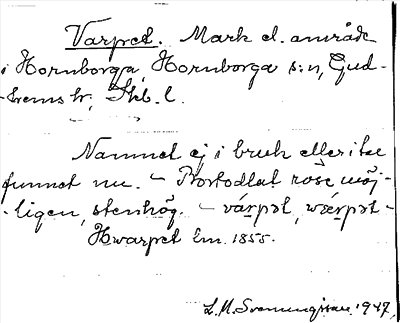 Varpet. Mark el. område
i Hornborga, Hornborga s:n, Gud-
hems hr, Skb. l.
Namnet ej i bruk eller icke
funnet nu. – Bortodlat röse möj-
-ligen, stenhög. – várpət, wærpət –
Hwarpet Lm. 1855.
L. M. Svenungsson. 1947